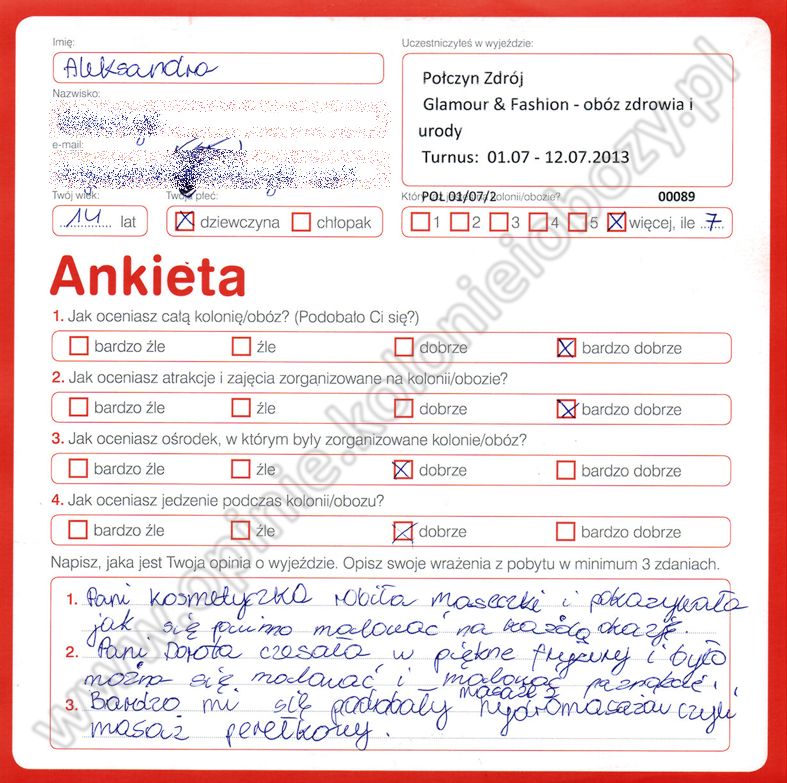 Imię:
Uczestniczyłeś w wyjeździe:
Aleksandra
Połczyn Zdrój
Glamour & Fashion - obóz zdrowia i
urody
Turnus: 01.07 - 12.07.2013
Nazwisko:
e-mail:
Twój wiek:
Twoja płeć:
kolonii/obozie?
POŁ 01/07/2
00089
14 lat
dziewczyna
chłopak
1 2 3 4 5 więcej, ile 7
Ankieta
1. Jak oceniasz całą kolonię/obóz? (Podobało Ci się?)
bardzo źle źle dobrze bardzo dobrze
2. Jak oceniasz atrakcje i zajęcia zorganizowane na kolonii/obozie?
bardzo źle źle dobrze bardzo dobrze
3. Jak oceniasz ośrodek, w którym były zorganizowane kolonie/obóz?
bardzo źle źle dobrze bardzo dobrze
4. Jak oceniasz jedzenie podczas kolonii/obozu?
bardzo źle źle dobrze bardzo dobrze
Napisz, jaka jest Twoja opinia o wyjeździe. Opisz swoje wrażenia z pobytu w minimum 3 zdaniach.
1. Pani kosmetyczka robiła maseczki i pokazywała
jak się pwinno malować na każdą okazję.
2. Pani Dorota czesała w piękne fryzury i było
można się malować i malować paznokcie.
3. Bardzo mi się podobały masaże z hydromasażem czyli
masaż perełkowy.
www.opinie.kolonieiobozy.pl